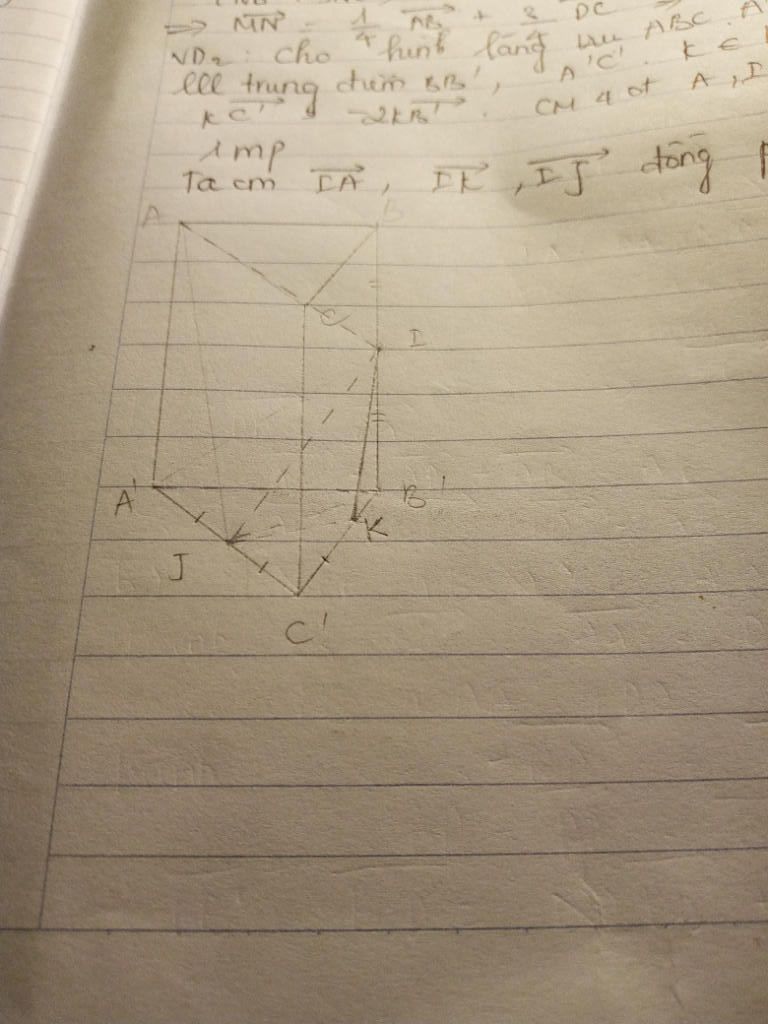 ⇒ MN = 1/4 AB + 3 DC
VD2: cho hình lăng trụ ABC. A
lll trung điểm BB', A'C'. K ∈
KC' = -2KB'. CM 4 đt A, I
1 mp
Ta cm IA, IK, IJ đồng
A
B
C
I
A'
B'
K
J
C'